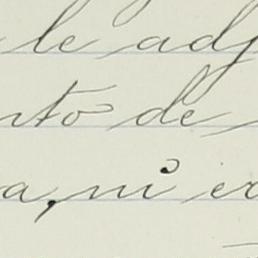 le adj
nto de
a, ni er